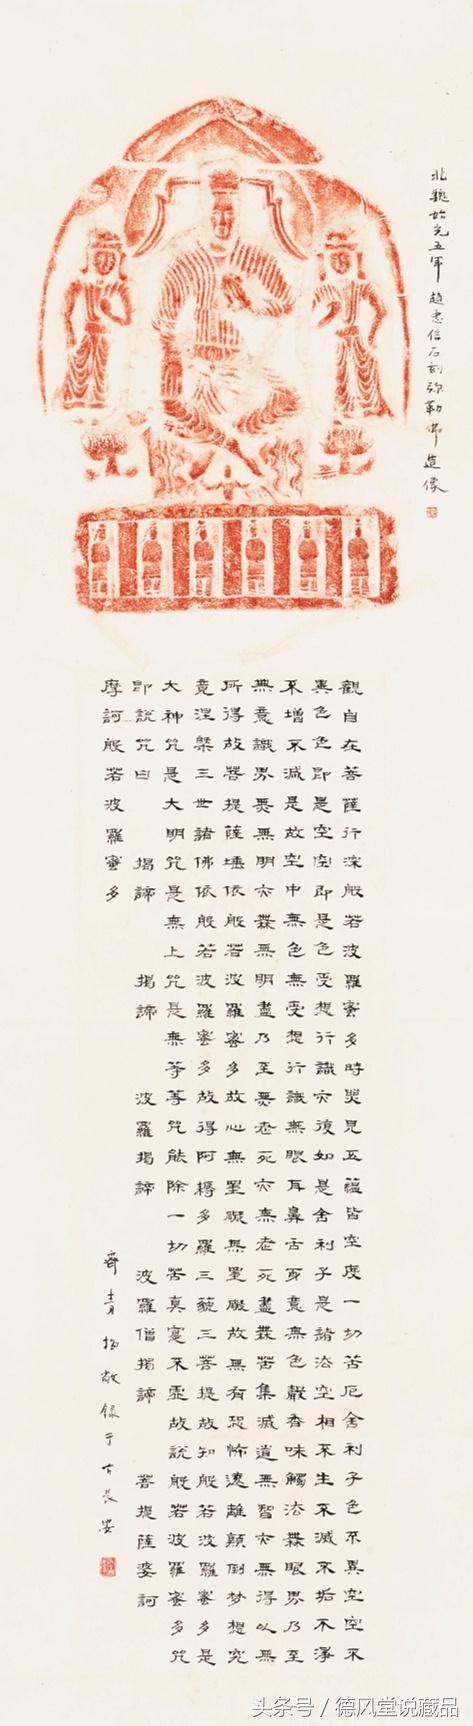 北魏始光五年 趙忠信石刻弥勒佛造像
觀自在菩薩行深般若波羅蜜多時照見五蘊皆空度一切苦厄舍利子色不異空空不
異色色即是空空即是色受想行識亦復如是舍利子是諸法空相不生不滅不垢不淨
不增不減是故空中無色無受想行識無眼耳鼻舌身意無色聲香味觸法無眼界乃至
無意識界無無明亦無無明盡乃至無老死亦無老死盡無苦集滅道無智亦無得以無
所得故菩提薩埵依般若波羅蜜多故心無罣礙無罣礙故無有恐怖遠離顛倒梦想究
竟涅槃三世諸佛依般若波羅蜜多故得阿耨多羅三藐三菩提故知般若波羅蜜多是
大神咒是大明咒是無上咒是無等等咒能除一切苦真實不虛故說般若波羅蜜多咒
即說咒曰 揭諦 揭諦 波羅揭諦 波羅僧揭諦 菩提薩婆訶
摩訶般若波羅蜜多
敬錄于古長安
头条号/德风堂说藏品